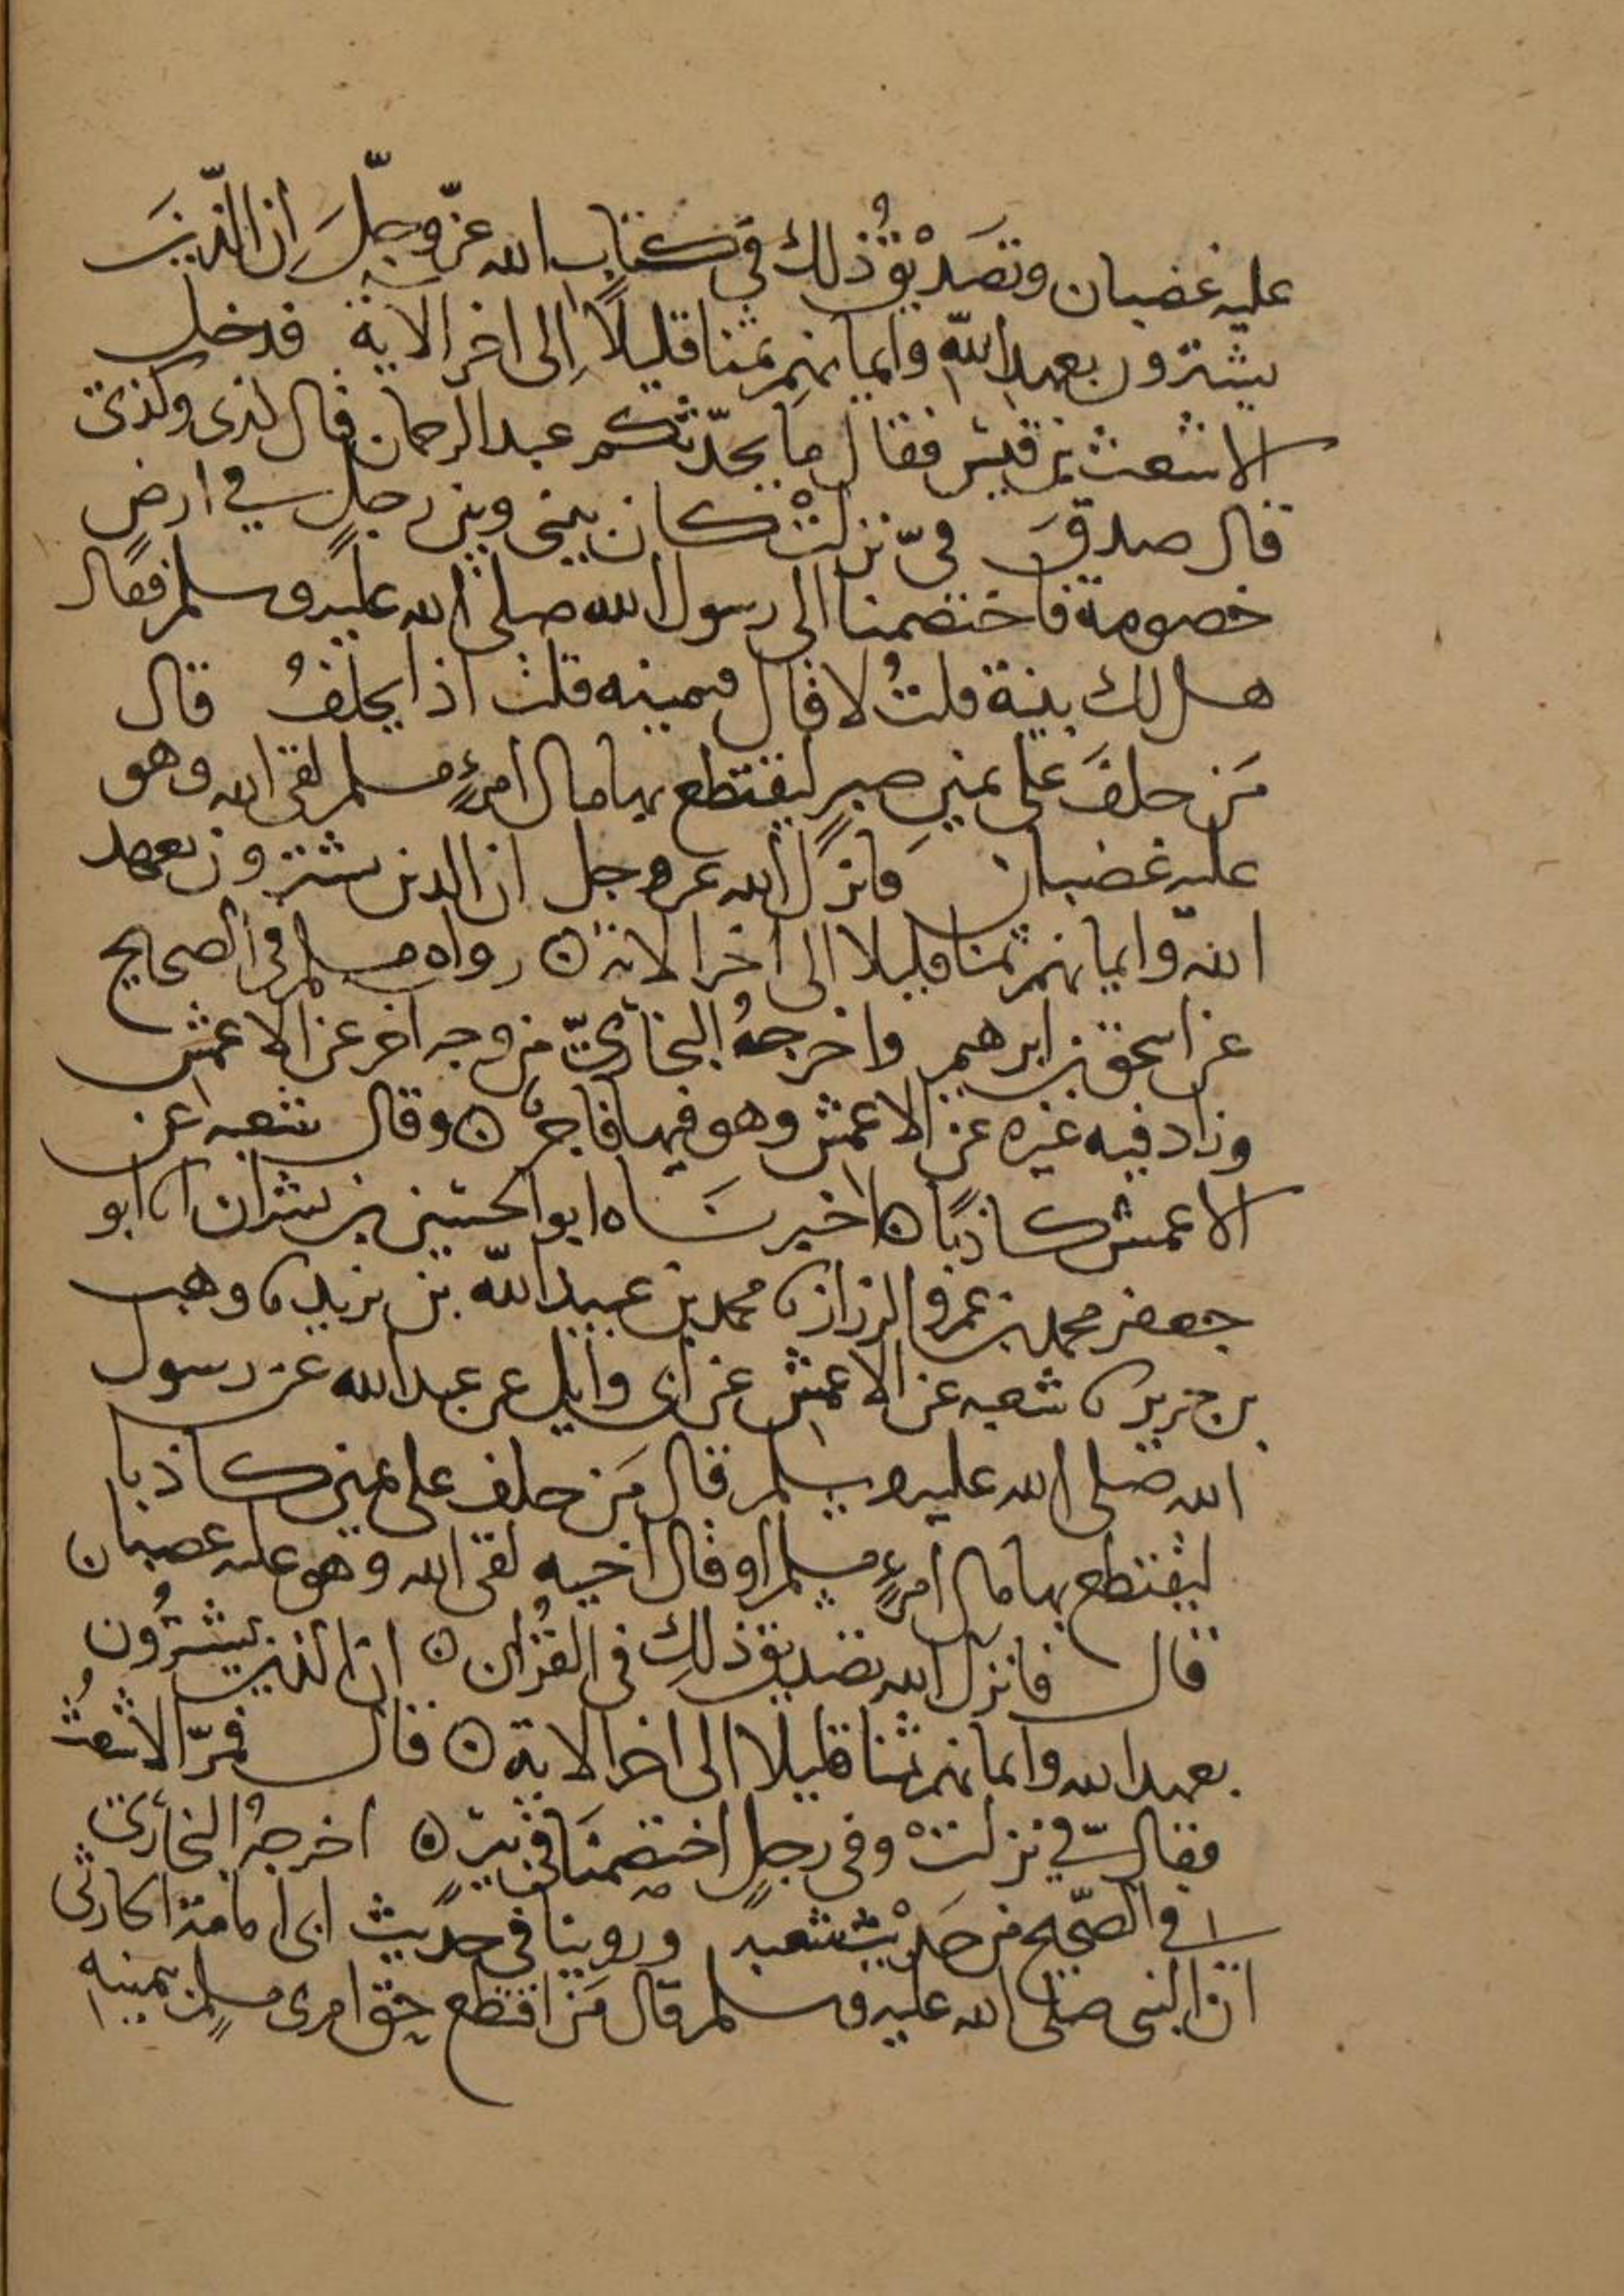 عليه غضبان وتَصَدْيقُ ذلك في كتاب الله عزّ وجلّ إن الذّينَ
يشترون بعهد اللّهِ وايمانهم ثمنا قليلاً إلى اخر الاية فدخل
الاشعث بن قيس فقال ما يحدّثكم عبد الرحمان قال لذى وكذى
قال صدقَ فيّ نزلتْ كان بيني وبين رجلٍ في ارضٍ
خصومة فاختصمنا الى رسول الله صلى الله عليه وسلم فقال
هل لك بينة قلتُ لا قال فيمينه قلت اذا يحلفُ قال
مَن حلفَ على يمينِ صبرٍ ليقتطع بها مال امرءٍ مسلم لقى الله وهو
عليه غضبان فانزلَ الله عز وجل ان الذين يشترون بعهد
اللّه وايمانهم ثمنا قليلا الى اخر الاية ه رواه مسلم في الصحيح
عن اسحق بن ابرهيم واخرجهُ البخاريّ من وجه اخر عن الاعمش
وزاد فيه غيره عن الاعمش وهو فيها فاجر ه وقال شعبه عن
الاعمش كاذبًا ه اخبرنَاه ابو الحسين بن بشران انا ابو
جعفر محمد بن عمرو الرزاز نا محمد بن عبيد اللّه بن يزيد نا وهب
بن جرير نا شعبه عن الاعمش عن ابى وايل عن عبد الله عن رسول
الله صلى الله عليه وسلم قال مَن حلف على يمين كاذبا
ليقتطع بها مال امرءٍ مسلم او قال اخيه لقى الله وهو عليه غضبان
قال فانزل الله تصديقَ ذلكِ في القُرْان ه ان الذين يشترُون
بعهد الله وايمانهم ثمنا قليلا الى اخر الاية ه قال فمرّ الاشعثُ
فقال فيّ نزلتْ وفي رجلٍ اختصَمنَا في بئرٍ ه اخرجهُ البخاري
في الصّحيح من حَدْيث شعبه وروينا في حديث ابى امامة الحارثى
ان النبى صلى الله عليه وسلم قال مَن اقتطع حق امرى مسلمٍ بيمينه